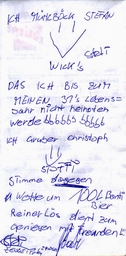 ICH MÜHLBÖCK STEFAN
WICK'S
DAS ICH BIS ZUM
MEINEN 37's Lebens=
Jahr nicht heiraten
werde
ICH Gruber christoph
Stimme dagegen
Wette um 100L
Bier
Reiner Lös dient zum
genießen mit Freunden